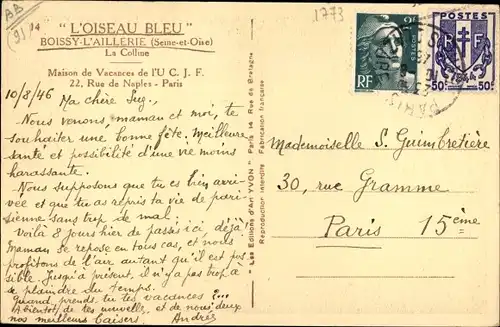 AB
(91) 14
"L'OISEAU BLEU"
BOISSY-L'AILLERIE (Seine-et-Oise)
La Colline
Maison de Vacances de l'U C. J. F.
22, Rue de Naples - Paris
10/8/46
Ma chère Sug.,
Nous venons, maman et moi, te
souhaiter une bonne fête. Meilleure
santé et possibilité d'une vie moins
harassante.
Nous supposons que tu es bien arri-
vée et que tu as repris ta vie de pari-
sienne sans trop de mal.
Voilà 8 jours hier de passés ici, déjà
Maman se repose en tous cas, et nous
profitons de l'air autant qu'il est pos-
sible. Jusqu'à présent, il n'y a pas trop à
se plaindre du temps.
Quand prends-tu tes vacances ?...
A bientôt de tes nouvelles, et de nous deux
nos meilleurs baisers. Andrée
"Les Editions d'Art YVON" Paris 14 Rue de Bretagne
Reproduction interdite Fabrication française
1773
RF
POSTES
50F 50F
PARIS
Mademoiselle S. Guimbretière
30, rue Gramme
Paris 15ème